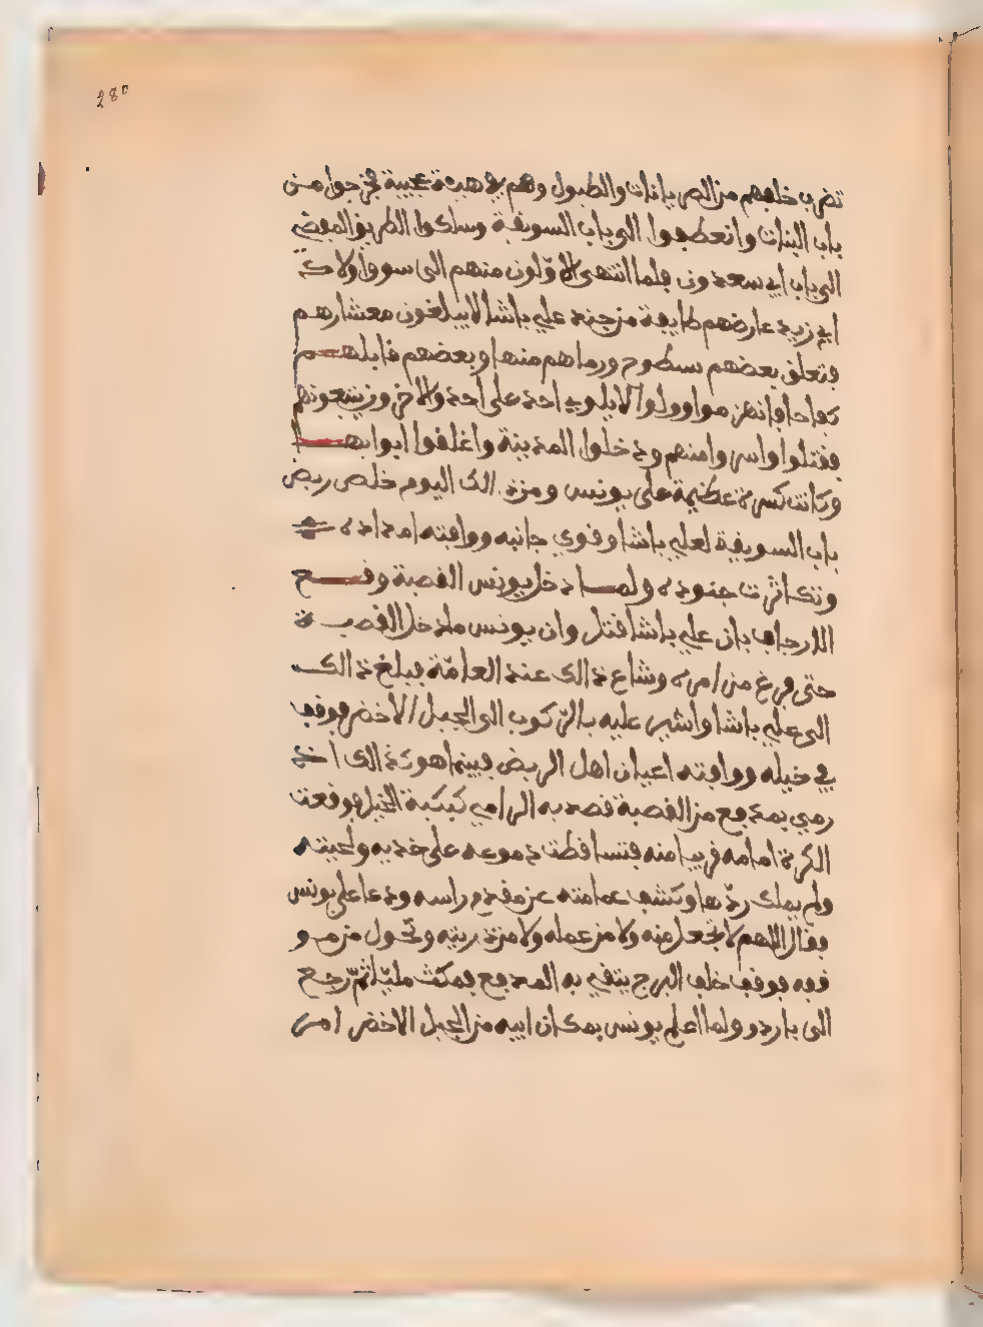 280
تضرب خلفهم من الصرباذات والطبول وهم في هيئة عجيبة فخرجوا من
باب البنات وانعطفوا الى باب السويقة وسلكوا الطريق المفضي
الى باب ابي سعدون فلما انتهى الاوّلون منهم الى سوق اولاد
ابي زيد عارضهم طايفة من جند علي باشا لا يبلغون معشارهم
فتعلق بعضهم بسطوح ورماهم منها وبعضهم قابلهم
كفاحا فانهزموا وولوا لا يلوي احد على احد والاخرون يتبعونهم
فقتلوا واسروا منهم ودخلوا المدينة واغلقوا ابوابها
وكانت كسرة عظيمة على يونس ومن ذالك اليوم خلص ربض
باب السويقة لعلي باشا وقوي جانبه ووافته امداده
وتكاثرت جنوده ولما دخل يونس القصبة وقع
الارجاف بان علي باشا قتل وان يونس ما دخل القصبة
حتى فرغ من امره وشاع ذالك عند العامّة فبلغ ذالك
الى علي باشا واشير عليه بالرّكوب الى الجبل الاخضر فوقف
في خيله ووافته اعيان اهل الربض فبينما هو كذالك اذ
رمي بمدفع من القصبة قصد به الرامي كبكبة الخيل فوقعت
الكرة امامه قريبا منه فتساقطت دموعه على خديه ولحيته
ولم يملك ردّها وكشف عمامته عن مقدم راسه ودعا على يونس
فقال اللهم لا تجعل منه ولا من عمله ولا من ذريته وتحّول من مو
قفه فوقف خلف البرج يتقي به المدفع فمكث مليّا ثمّ رجع
الى باردو ولما اعلم يونس بمكان ابيه من الجبل الاخضر امر